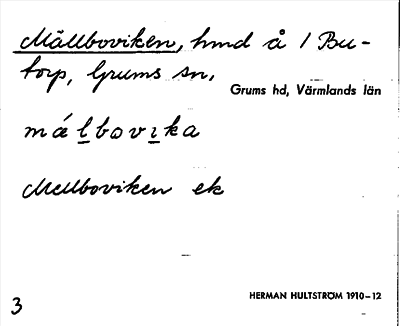 Mällboviken, hmd å 1 Bu-
torp, Grums sn,
Grums hd, Värmlands län
málbovika
Mellboviken ek
3
HERMAN HULTSTRÖM 1910-12